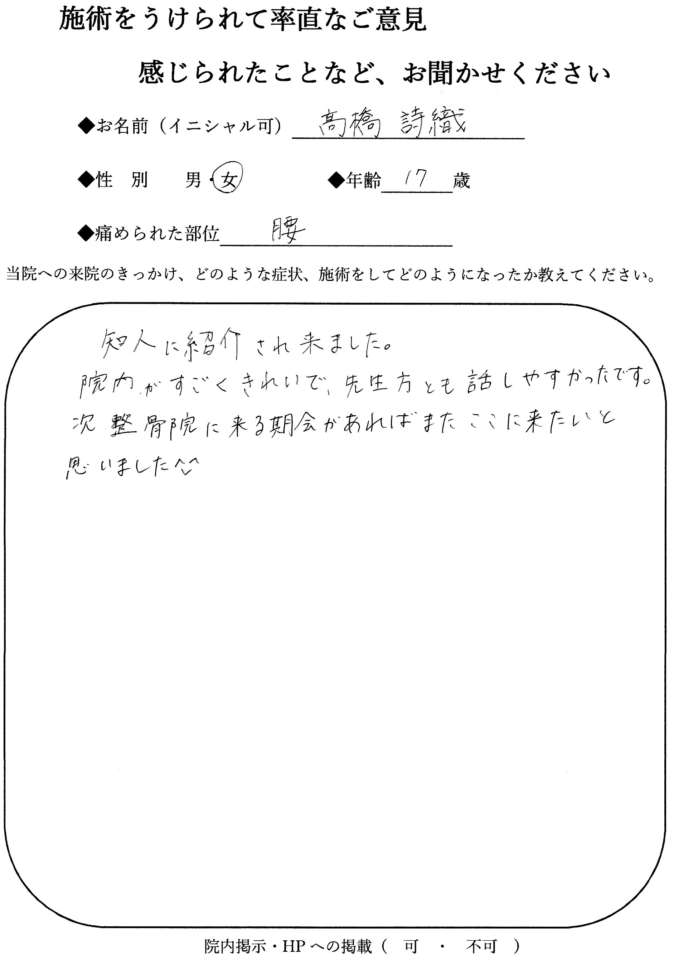 施術をうけられて率直なご意見
感じられたことなど、お聞かせください
◆お名前（イニシャル可） 髙橋 詩織
◆性 別 男・女 ◆年齢 17 歳
◆痛められた部位 腰
当院への来院のきっかけ、どのような症状、施術をしてどのようになったか教えてください。
知人に紹介され来ました。
院内がすごくきれいで、先生方とも話しやすかったです。
次整骨院に来る期会があればまたここに来たいと
思いました^^
院内掲示・HPへの掲載（ 可 ・ 不可 ）